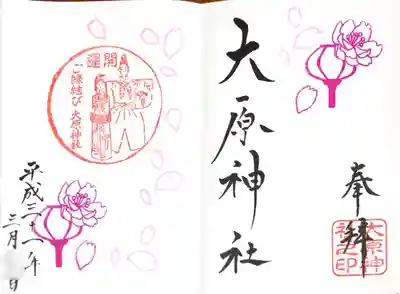 奉拝
大原神社
大原神
社之印
開運
ご縁結び 大原神社
平成三十一年
三月 日